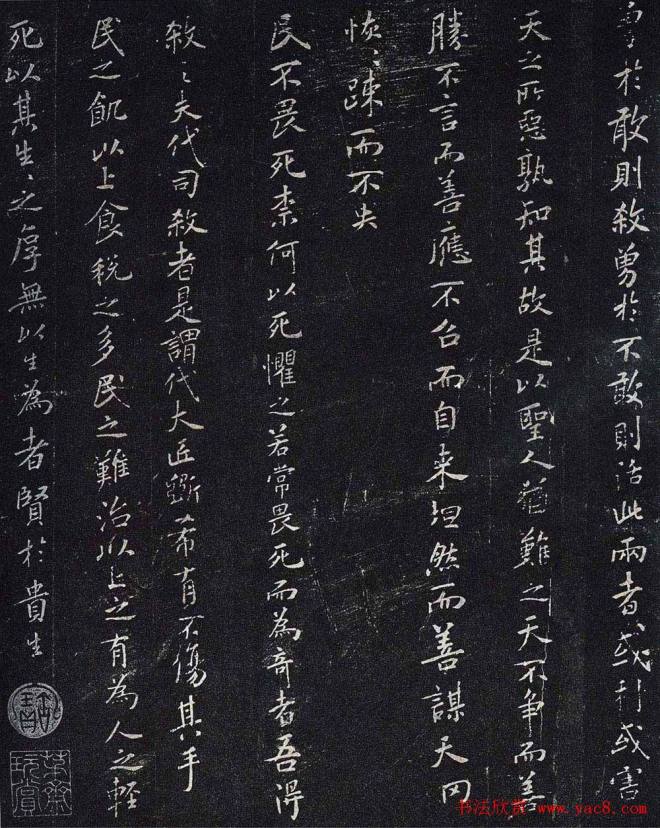 勇於敢則殺勇於不敢則活此兩者或利或害
天之所惡孰知其故是以聖人猶難之天不争而善
勝不言而善應不召而自来坦然而善謀天网
恢〻踈而不失
民不畏死柰何以死懼之若常畏死而為奇者吾得
殺之夫代司殺者是謂代大匠斲希有不傷其手
民之飢以上食稅之多民之難治以上之有為人之輕
死以其生〻之厚無以生為者賢於貴生
书法欣赏 www.yac8.com